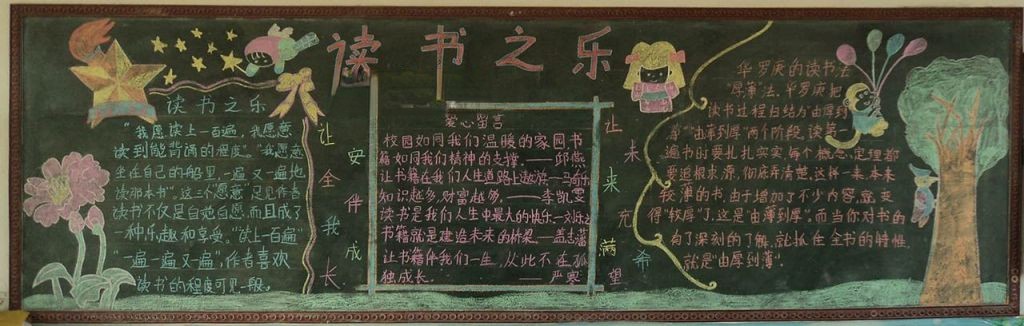 读书之乐
读书之乐
"我愿读上一百遍，我愿意
读到能背诵的程度。""我愿意
坐在自己的船里，一遍又一遍地
读那本书"。这三个"愿意"足见作者
读书不仅是自觉自愿，而且成了
一种乐趣和享受。"读上一百遍"
"一遍一遍又一遍"，作者喜欢
读书的程度可见一般。
让安全伴我成长
爱心留言
校园如同我们温暖的家园书
籍如同我们精神的支撑。——邱燕
让书籍在我们人生道路上遨游—马
知识越多，财富越多。——李凯雯
读书是我们人生中最大的快乐—刘
书籍就是建造未来的桥梁—孟志
让书籍伴我们一生，从此不在孤
独成长。——严寒
让未来充满希望
华罗庚的读书法
"厚薄"法。华罗庚把
读书过程归结为"由厚到
薄""由薄到厚"两个阶段。读第一
遍书时要扎扎实实，每个概念、定理都
要追根求源，彻底弄清楚。这样一来，本来
较薄的书，由于增加了不少内容，就变
得"较厚"了，这是"由薄到厚"。而当你对书的
有了深刻的了解，就抓住全书的特性
就是"由厚到薄"。